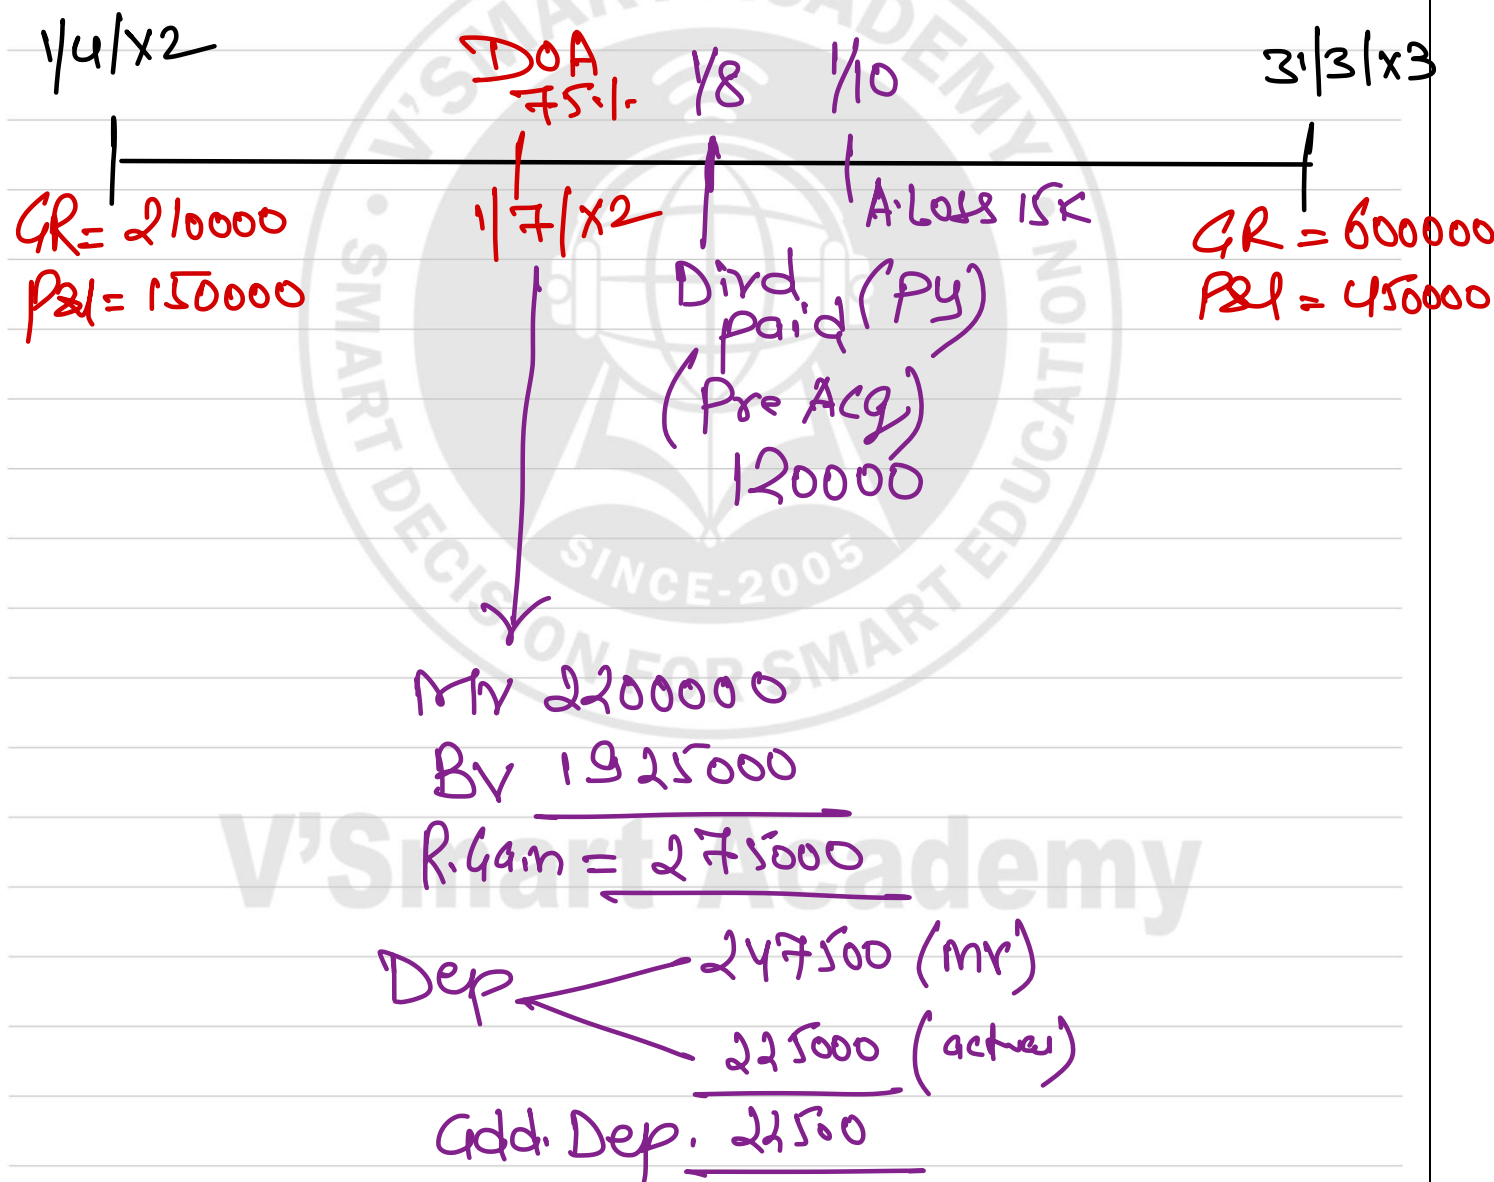 1/4/X2
DOA
75%
1/8
1/10
31/3/X3
GR = 210000
P&l = 150000
1/7/X2
A.Loss 15K
GR = 600000
P&l = 450000
Divd. (PY)
paid
(Pre Acq)
120000
MV 2200000
BV 1925000
R.Gain = 275000
Dep
247500 (mv)
225000 (actual)
Add. Dep. 22500
V'SMART ACADEMY
SMART DECISION FOR SMART EDUCATION
SINCE-2005
V'Smart Academy